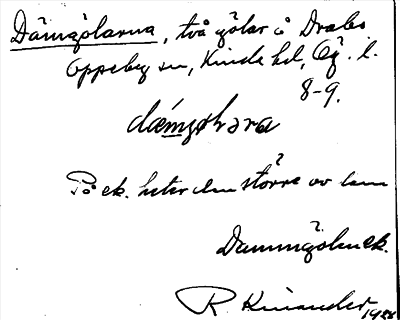 Dämgölarna, två gölar å Drabo
Oppeby sn, Kinda hd, Ög. l.
8-9.
På ek. heter den större av dem
Dammgölen ek.
R. Kinander